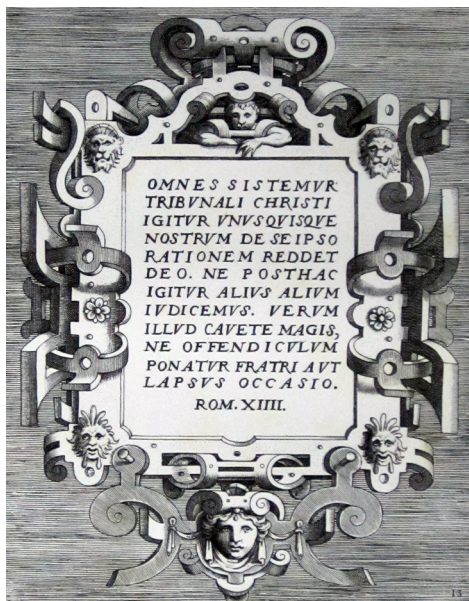 OMNES SISTEMVR
TRIBVNALI CHRISTI
IGITVR VNVSQVISQVE
NOSTRVM DE SEIPSO
RATIONEM REDDET
DEO. NE POSTHAC
IGITVR ALIVS ALIVM
IVDICEMVS. VERVM
ILLVD CAVETE MAGIS,
NE OFFENDICVLVM
PONATVR FRATRI AVT
LAPSVS OCCASIO.
ROM. XIIII.
13